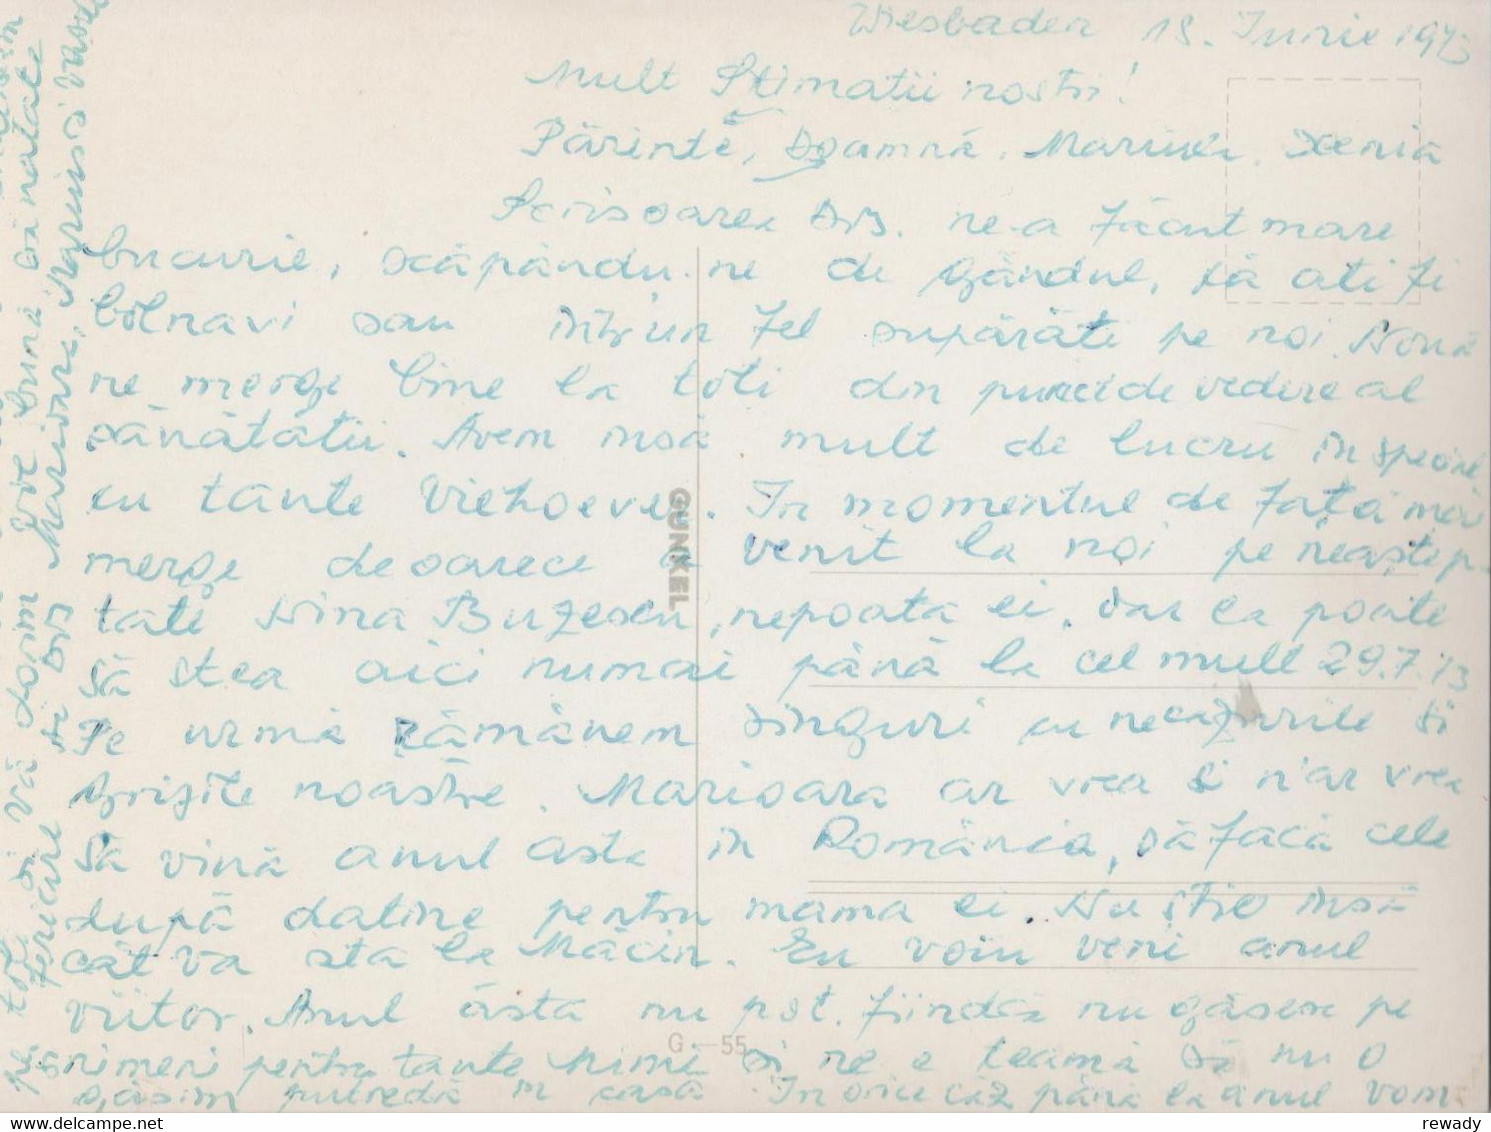 Wiesbaden 18. Iunie 1973
Mult Stimatii nostri!
Părinte, Doamnă, Xenia
Scrisoarea Dvs. ne-a făcut mare
bucurie, scăpându-ne de gândul, că ati fi
bolnavi sau într'un fel supărăti pe noi. Nouă
ne merge bine la toti din punct de vedere al
sănătătii. Avem insă mult de lucru in special
cu tante. In momentul de fată mai
merge deoarece a venit la noi pe neaştep-
tate Nina Buzescu, nepoata ei, dar ea poate
să stea aici numai până la cel mult 29.7.73
Pe urmă rămânem singuri cu necazurile si
grijile noastre. Marioara ar vrea si n'ar vrea
să vină anul asta in România, să facă cele
după datine pentru mama ei. Nu stie insă
cât va sta la Măcin. Eu voiu veni anul
viitor. Anul ăsta nu pot, fiindcă nu găsesc pe
nimeni pentru tante Mimi si ne e teamă să nu o
găsim putredă in casă. In orice caz până la anul vom
si Vă dorim tot bună sănătate
fericire Marioara,
GUNKEL
G - 55
delcampe.net
rewady